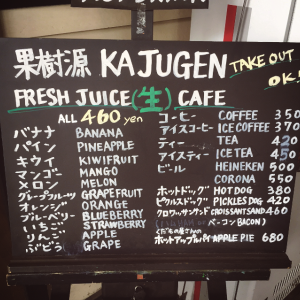 果樹源 KAJUGEN
TAKE OUT OK!
FRESH JUICE(生) CAFE
ALL 460 yen
バナナ BANANA
パイン PINEAPPLE
キウイ KIWIFRUIT
マンゴー MANGO
メロン MELON
グレープフルーツ GRAPEFRUIT
オレンジ ORANGE
ブルーベリー BLUEBERRY
いちご STRAWBERRY
りんご APPLE
ぶどう GRAPE
コーヒー COFFEE 350
アイスコーヒー ICE COFFEE 370
ティー TEA 420
アイスティー ICE TEA 450
ビール HEINEKEN 500
CORONA 550
ホットドッグ HOT DOG 380
ピクルスドッグ PICKLES DOG 420
クロワッサンサンド CROISSANT SAND 460
ベーコン BACON)
くだもの屋さんの
ホットアップルパイ APPLE PIE 680